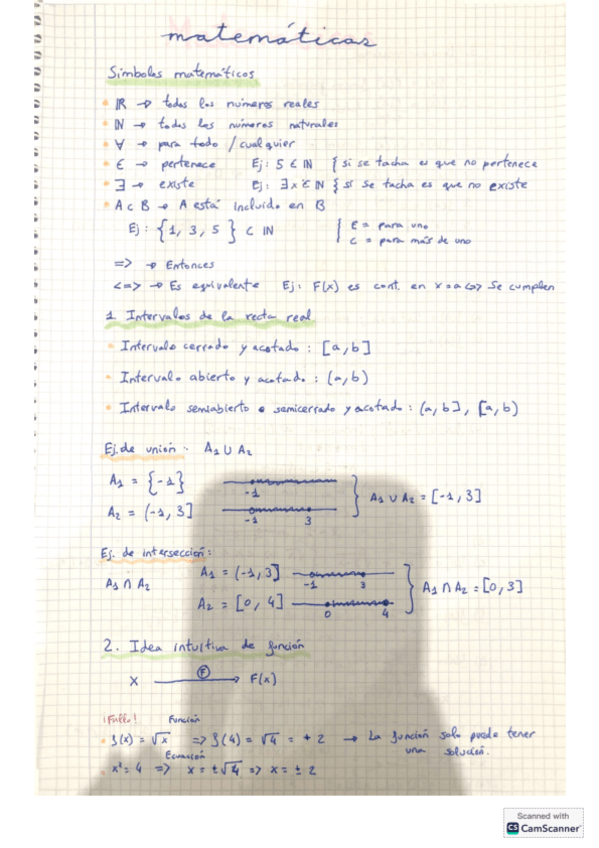 matemáticas
Símbolos matemáticos
• ℝ → todos los números reales
• ℕ → todos los números naturales
• ∀ → para todo / cualquier
• ∈ → pertenece Ej: 5 ∈ ℕ { si se tacha es que no pertenece
• ∃ → existe Ej: ∃ x ∈ ℕ { si se tacha es que no existe
• A ⊂ B → A está incluido en B
Ej: {1, 3, 5} ⊂ ℕ
∈ = para uno
⊂ = para más de uno
=> → Entonces
<=> → Es equivalente Ej: F(x) es cont. en x=a <=> Se cumplen
1. Intervalos de la recta real
• Intervalo cerrado y acotado: [a,b]
• Intervalo abierto y acotado: (a,b)
• Intervalo semiabierto o semicerrado y acotado: (a,b], [a,b)
Ej. de unión: A1 ∪ A2
A1 = {-1} -1
A2 = (-1,3] -1 3
A1 ∪ A2 = [-1,3]
Ej. de intersección:
A1 ∩ A2
A1 = (-1,3] -1 3
A2 = [0,4] 0 4
A1 ∩ A2 = [0,3]
2. Idea intuitiva de función
X F F(x)
¡Fallo! Función
• f(x) = √x => f(4) = √4 = +2 → La función solo puede tener
una solución.
Ecuación
• x² = 4 => x = ±√4 => x = ±2
Scanned with
CS CamScanner